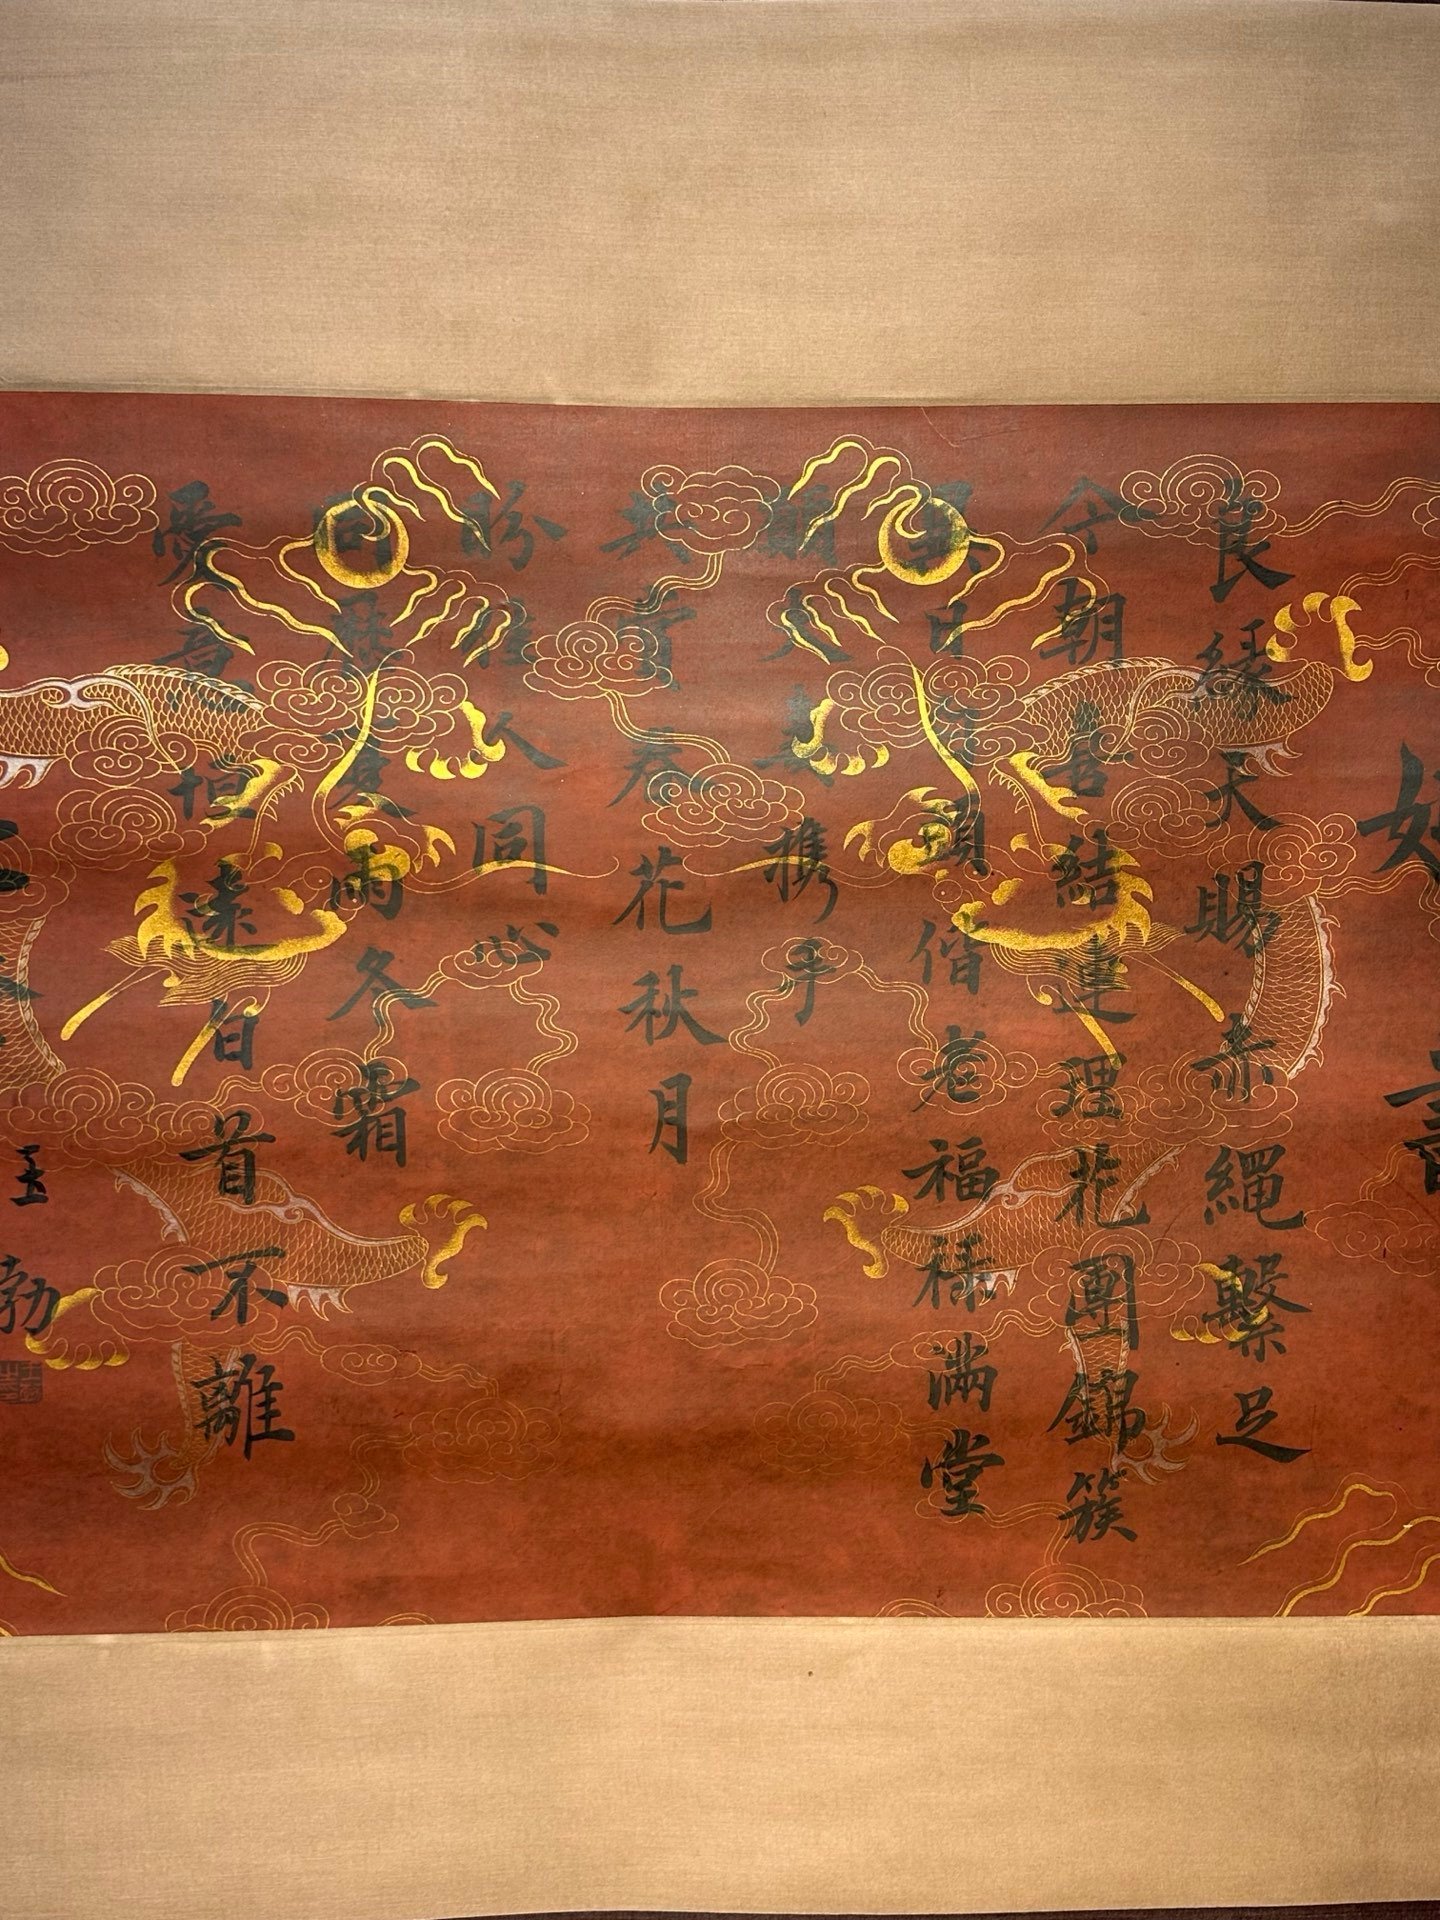 良緣天賜赤繩繫足
今朝喜結連理花團錦簇
頭偕老福祿滿堂
願夫妻攜手
共賞春花秋月
盼佳人同心
同歷夏雨冬霜
愛意恒遠白首不離
王勃